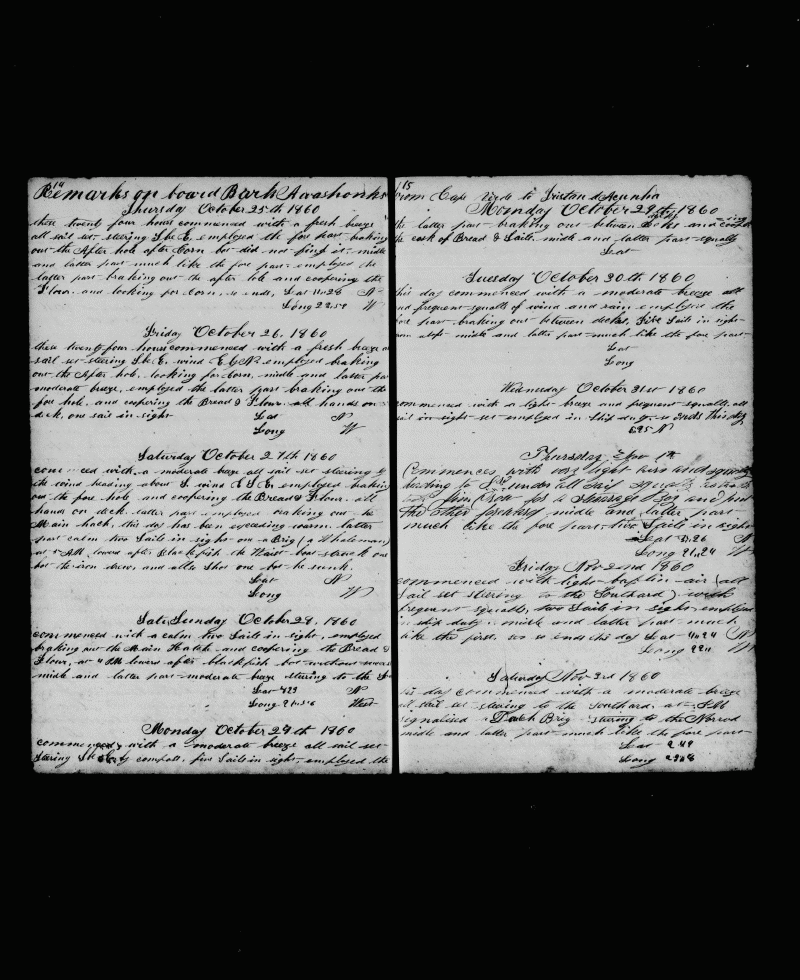 14
Remarks on board Bark Awashonks
Thursday October 25th 1860
these twenty four hours commenced with a fresh breeze
all sail set steering S by E, employed the fore part braking
out the After hole after Corn but did not find it middle
and latter part much like the fore part employed the
latter part braking out the after hole and coopering the
Flour and looking for Corn, so ends, Lat N
Long 22.59 W
Friday October 26, 1860
these twenty four hours commenced with a fresh breeze
sail set steering S by E. wind E by N employed braking
out the After hole, looking for Corn, middle and latter par
moderate breeze, employed the latter part braking out the
fore hole, and coopering the Bread & Flour. all hands on
deck, one sail in sight
Lat N
Long W
Saturday October 27th 1860
commenced with a moderate breeze all sail set steering by
the wind heading about S. wind E S E. employed braking
out the fore hole and coopering the Bread & Flour. all
hands on deck latter part employed braking out the
Main hach, this day has been exceeding warm. latter
part calm two Sails in sight one a Brig (a Whaleman)
at AM. lowerd after Blackfish the Waist boat struck one
but the iron drew, and allso Shot one but he sunk.
Lat N
Long W
Sunday October 28, 1860
commenced with a calm two Sails in sight, employed
braking out the Main Hatch and coopering the Bread &
Flour, at AM lowerd after blackfish but without success
middle and latter part moderate breeze steering to the
Lat 4.23 N
Long West
Monday October 29th 1860
commenced with a moderate breeze all sail set
Steering S by compass, five Sails in sight, employed the
15
From Cape Verde to Tristan d'Acunha
Monday October 29th 1860
the latter part braking out between decks and coopering
the cask of Bread & Sails. middle and latter part squally
Lat
Tuesday October 30th 1860
this day commenced with a moderate breeze all
and frequent squalls of wind and rain employed the
fore part braking out between decks, Five Sails in sight
middle and latter part much like the fore part
Lat
Long
Wednesday October 31st 1860
commenced with a light breeze and frequent squalls, all
sail in sight employed in Ship duty so ends this day
Thursday
Commences with very light airs and squally
heading to under all sail
for a and
the other middle and latter part
much like the fore part. two Sails in sight
Lat 3.26 N
Long 21.24 W
Friday Nov 2nd 1860
commenced with light air (all
Sail set steering to the Southard) with
frequent squalls, two Sails in sight employed
in ship duty middle and latter part much
like the first, so ends this day Lat N
Long W
Saturday Nov 3rd 1860
this day commenced with a moderate breeze
all sail set steering to the Southard. at AM
signalised a Dutch Brig steering to the Norrad
middle and latter part much like the fore part
Lat 2.49
Long